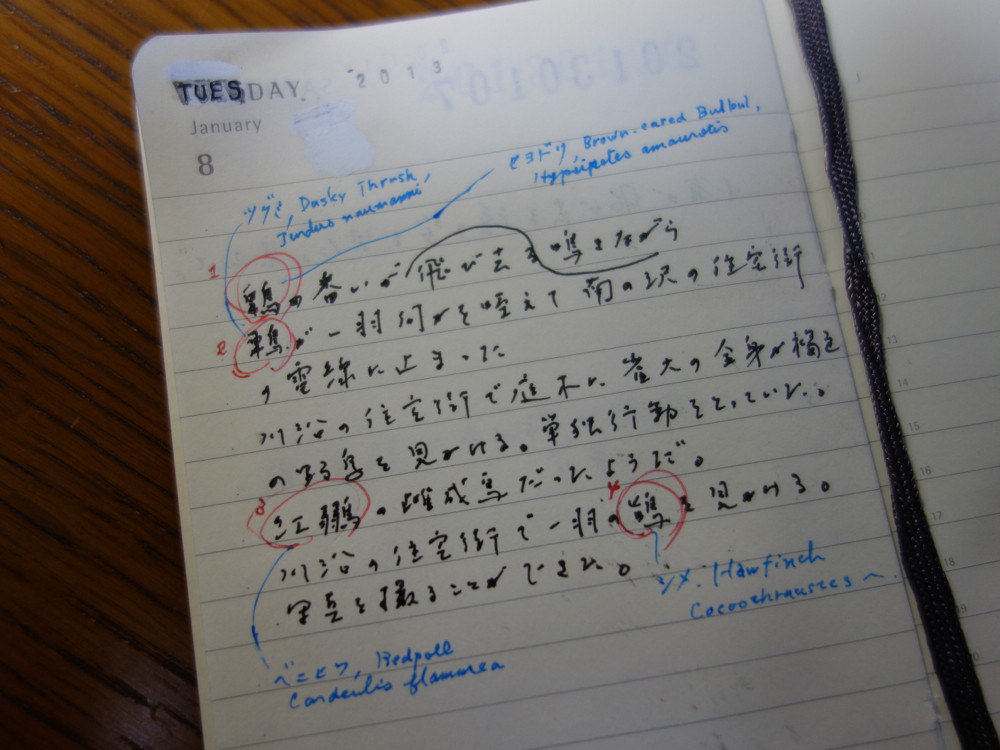 TUESDAY 2013
January
8
ヒヨドリ Brown-eared Bulbul,
Hypsipetes amaurotis
ツグミ, Dusky Thrush,
Turdus naumanni
1
の番いが飛び去る鳴きながら
2
鶫が一羽何かを咥えて南の沢の住宅街
の電線に止まった
川沿の住宅街で庭木に雀大の全身が褐色
の野鳥を見かける。単独行動をとっていた。
3
紅鶸の雌成鳥だったようだ。
4
川沿の住宅街で一羽の鴲を見かける。
写真を撮ることができた。
シメ. Hawfinch
Cocothraustes 〜.
ベニヒワ, Redpoll
Carduelis flammea
13
14
16
17
18